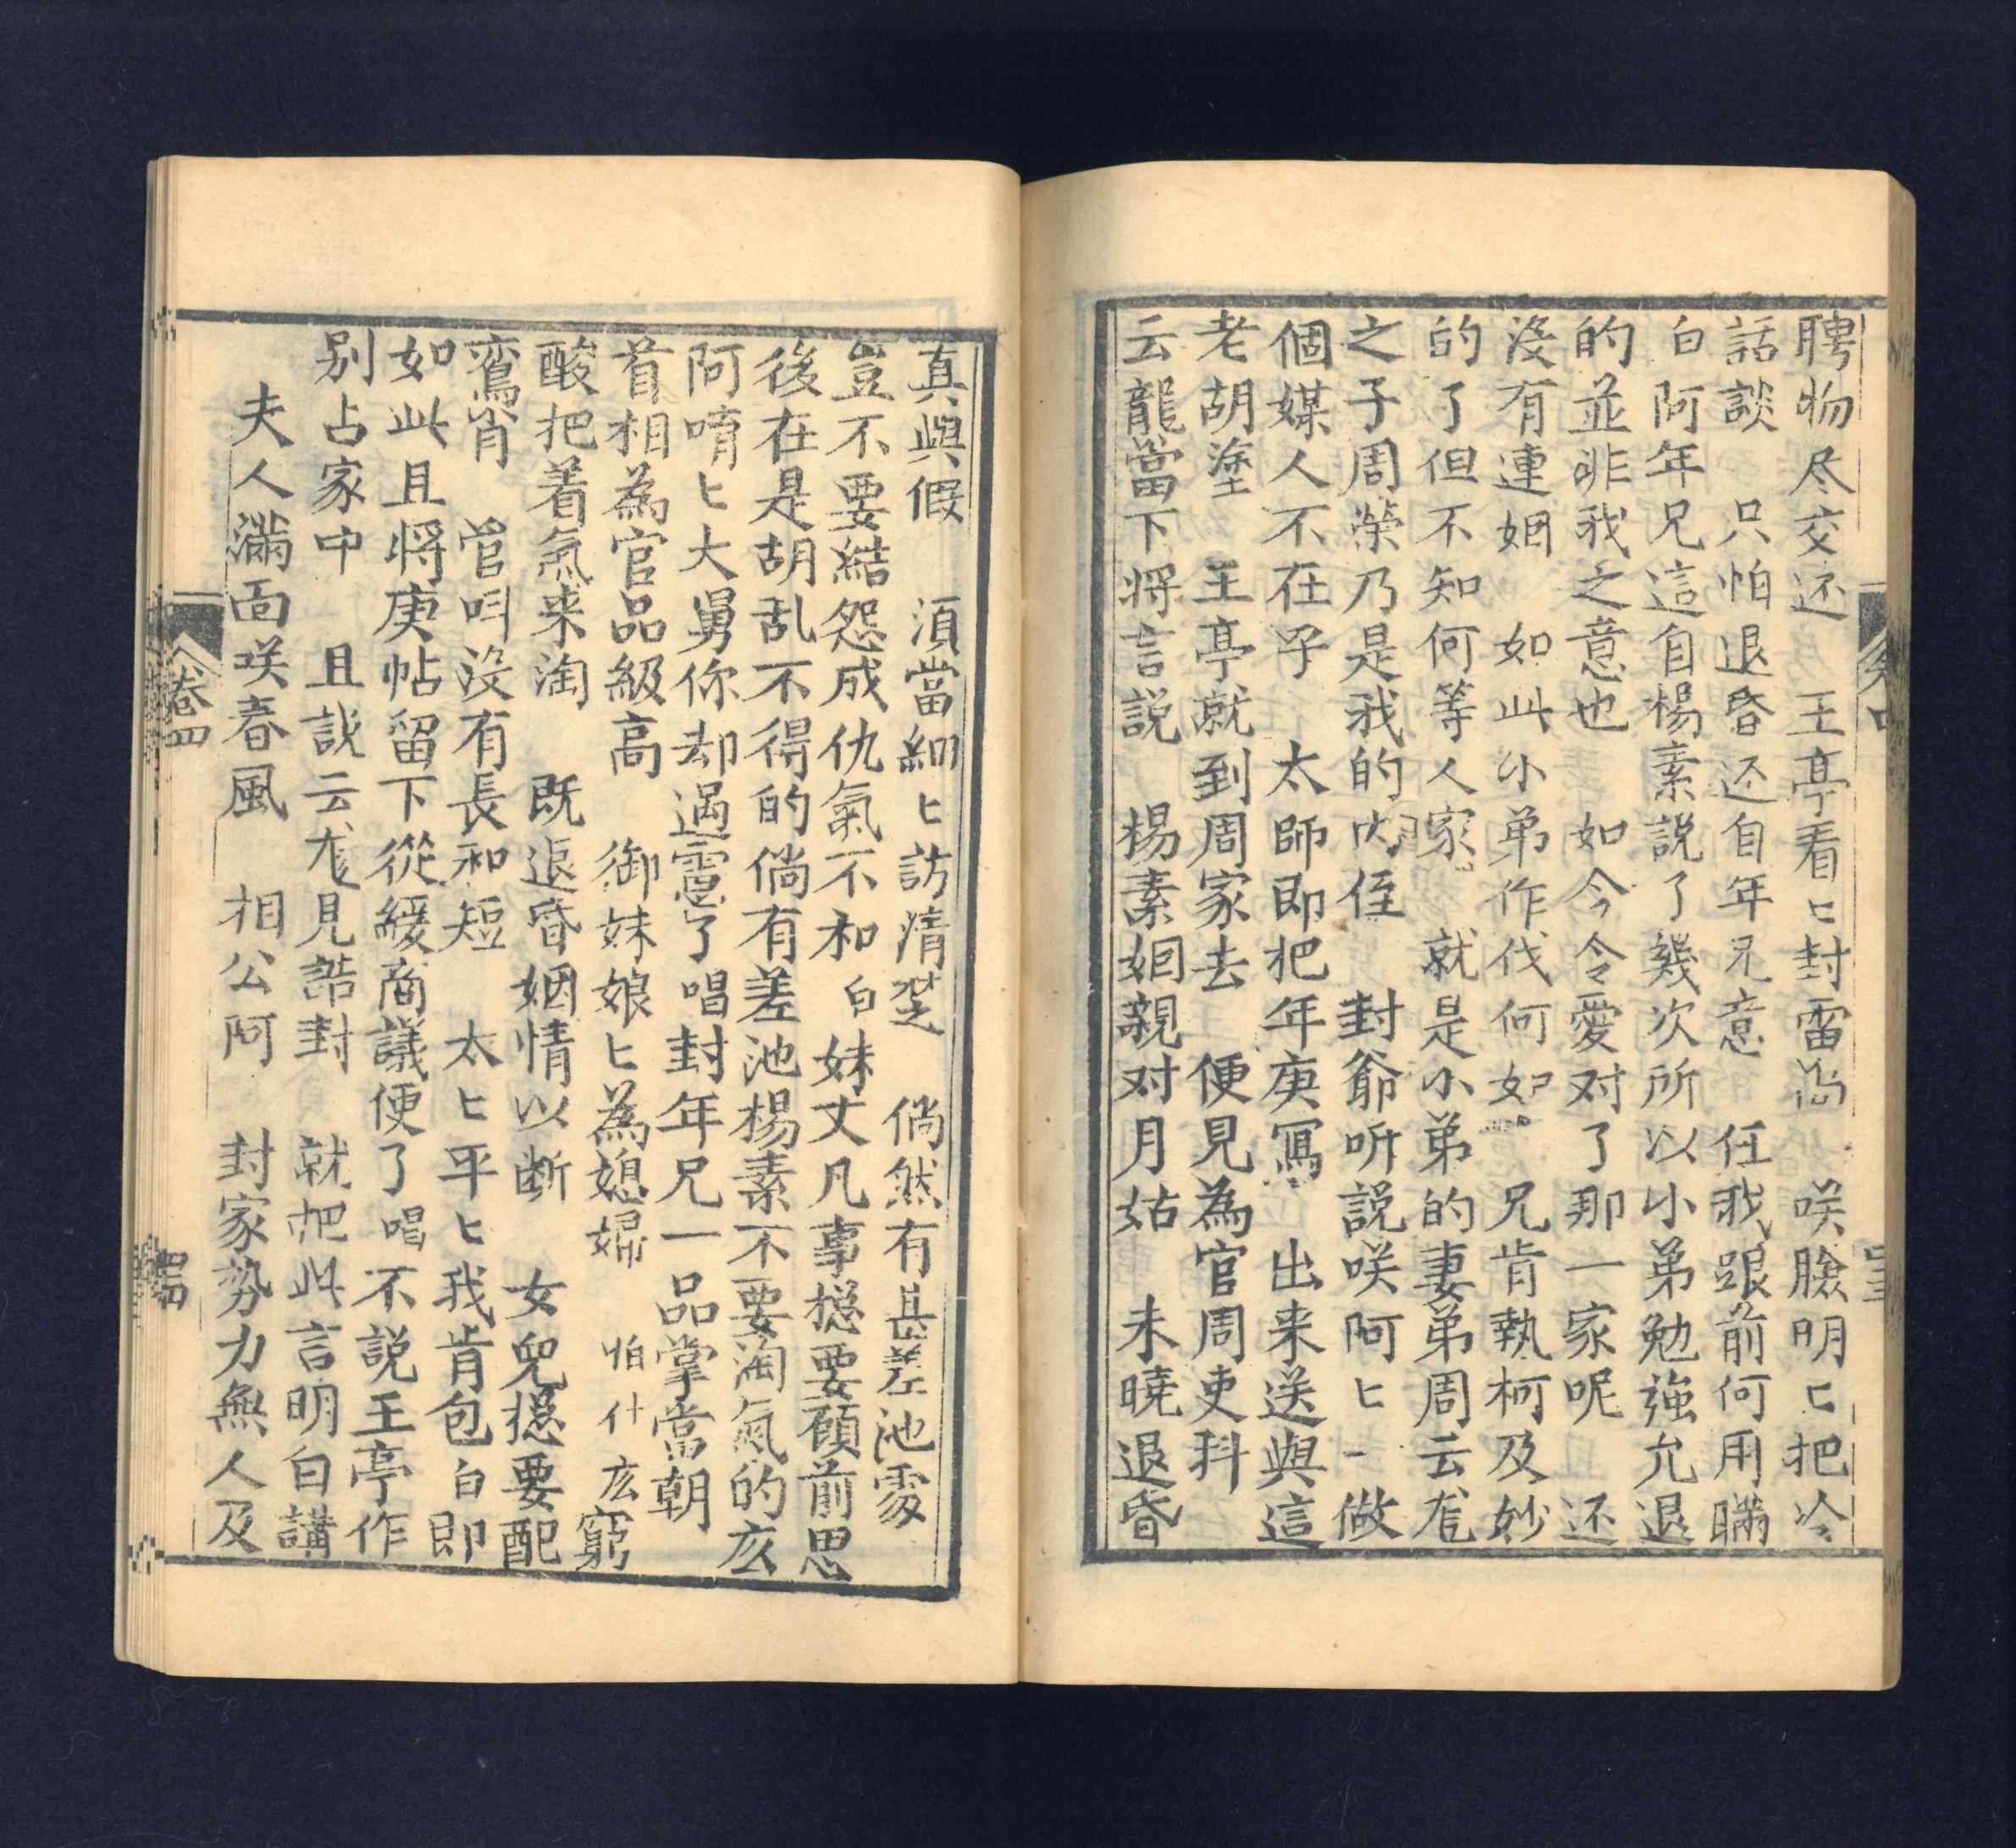 聘物尽交还　王亭看匕封雷尚　咲臉明匕把冷
話談　只怕退昏还自年兄意　任我跟前何用瞞
白阿年兄這自楊素說了幾次所以小弟勉強允退
的並非我之意也　如今令愛对了那一家呢　还
没有連姻　如此小弟作伐何如　兄肯執柯及妙
的了但不知何等人家　就是小弟的妻弟周云尨
之子周榮乃是我的内侄　封爺听説咲阿匕一做
個媒人不在乎　太師即把年庚寫　出来送與這
老胡塗　王亭就到周家去　便見為官周吏科
云龍當下将言説　楊素姻親对月姑　未曉退昏
卷四
真與假　須當細匕訪清楚　倘然有甚差池䖏
豈不要結怨成仇氣不和白妹丈凡事摠要顧前思
後在是胡乱不得的倘有差池楊素不要淘氣的庅
阿唷匕大舅你却過慮了唱封年兄一品掌當朝
首相為官品級高　御妹娘匕為媳婦　怕什庅窮
酸把着氣来淘　既退昏姻情以断　女兒摠要配
鸞肖　曾呌没有長和短　太匕平匕我肯包白即
如此且将庚帖留下從緩商議便了唱不説王亭作
别占家中　且説云尨見誥封　就把此言明白講
夫人滿面咲春風　相公阿　封家勢力無人及
卷四